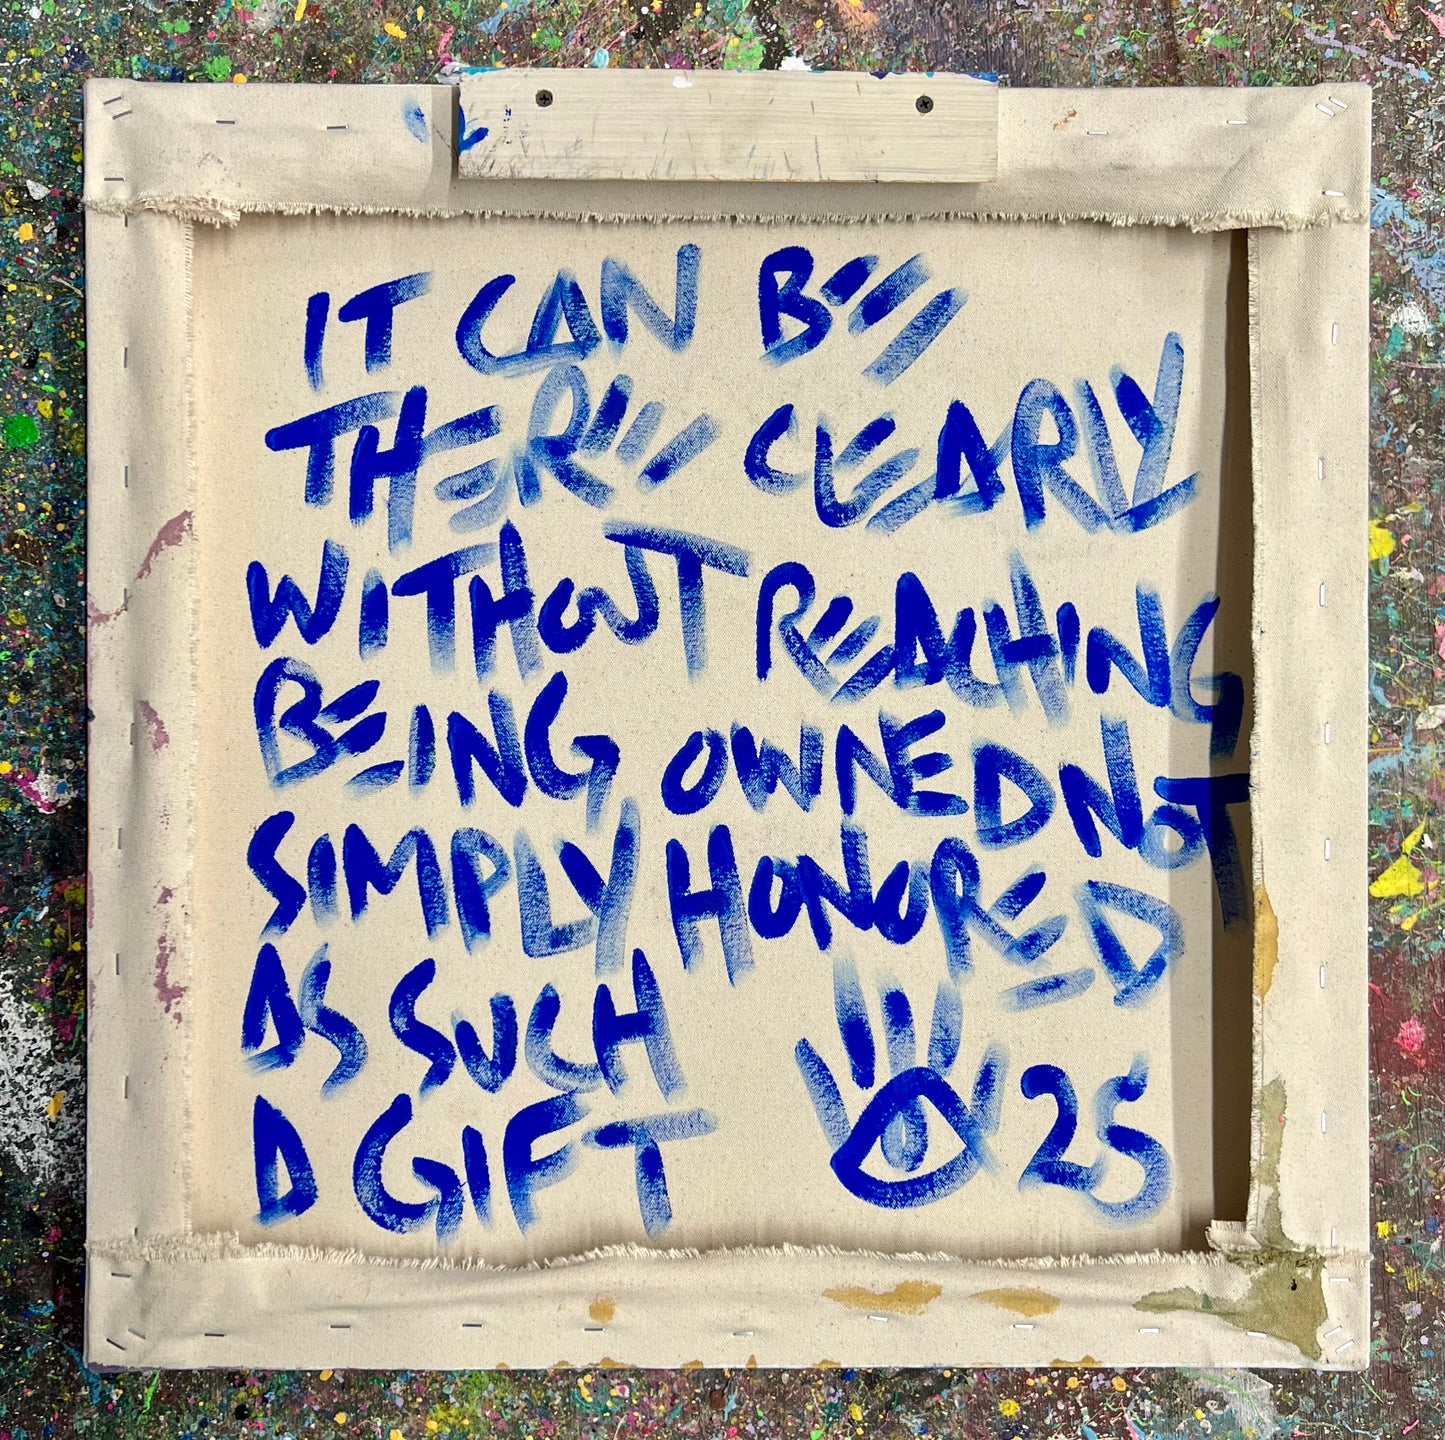 IT CAN BE
THERE CLEARLY
WITHOUT REACHING
BEING OWNED NOT
SIMPLY HONORED
AS SUCH
A GIFT 25